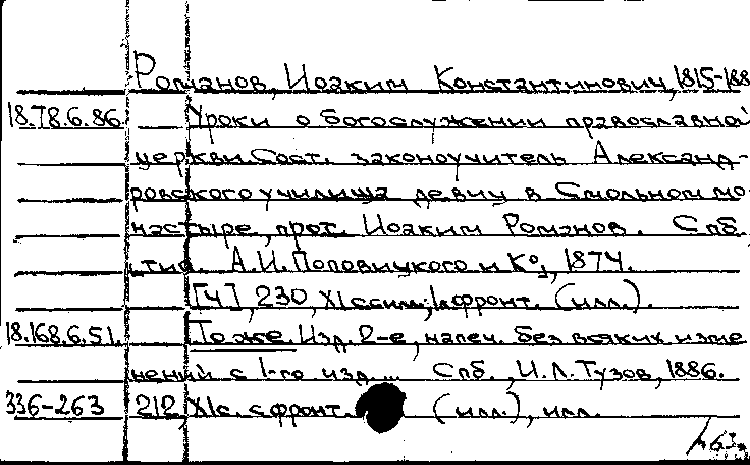 Романов, Иоаким Константинович, 1815-188
18.78.6.86. Уроки о богослужении православной
церкви. Сост. законоучитель Александ-
ровского училища девиц в Смольном мо
настыре, прот. Иоаким Романов. Спб.
, тип. А.И. Поповицкого и К°, 1874.
[4], 230, XI с. с илл.; 1 л. фронт. (илл.).
18.168.6.51. То же. Изд. 2-е, напеч. без всяких изме
нений с 1-го изд. ... Спб., И.Л. Тузов, 1886.
336-263 212, XI с. с фронт. (илл.), илл.